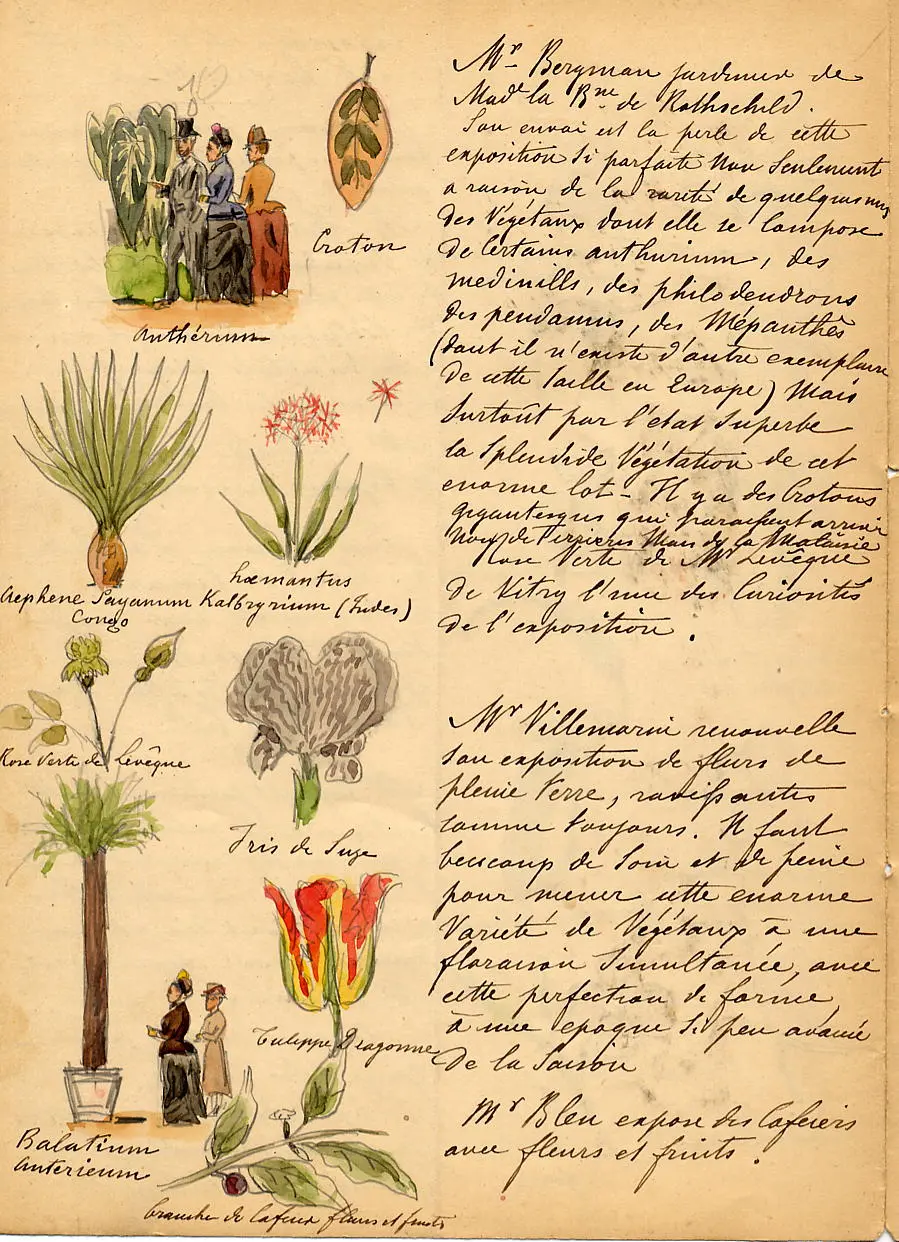 Croton
Anthérium
hœmantus
Kalbryrium (Indes)
Aephene Sayanum
Congo
Rose Verte de Lévêque
Iris de Suze
Tulippe Dragonne
Balatium
Anterieum
branche de Cafeier fleurs et fruits
Mr Bergman jardinier de
Made la Bnne de Rothschild.
Son envoi est la perle de cette
exposition si parfaite non seulement
a raison de la rareté de quelques uns
des Végétaux dont elle se compose
de Certains anthurium, des
medinills, des philodendrons
des pendamus, des Népanthès
(dont il n'existe d'autre exemplaire
de cette taille en Europe) Mais
Surtoût par l'etat Superbe
la Splendide Végétation de cet
enorme lot - Il y a des Crotons
gigantesques qui paraissent arriver
de la Malaisie
Rose Verte de Mr Levêque
de Vitry l'une des Curiosités
de l'exposition.
Mr Villemarin renouvelle
son exposition de fleurs de
pleine Terre, ravissantes
comme toujours. Il faut
beaucoup de Soin et de peine
pour mener cette enorme
Variété de Végétaux à une
floraison Simultanée, avec
cette perfection de forme
à une epoque si peu avancée
de la Saison
Mr Bleu expose des Cafeiers
avec fleurs et fruits.